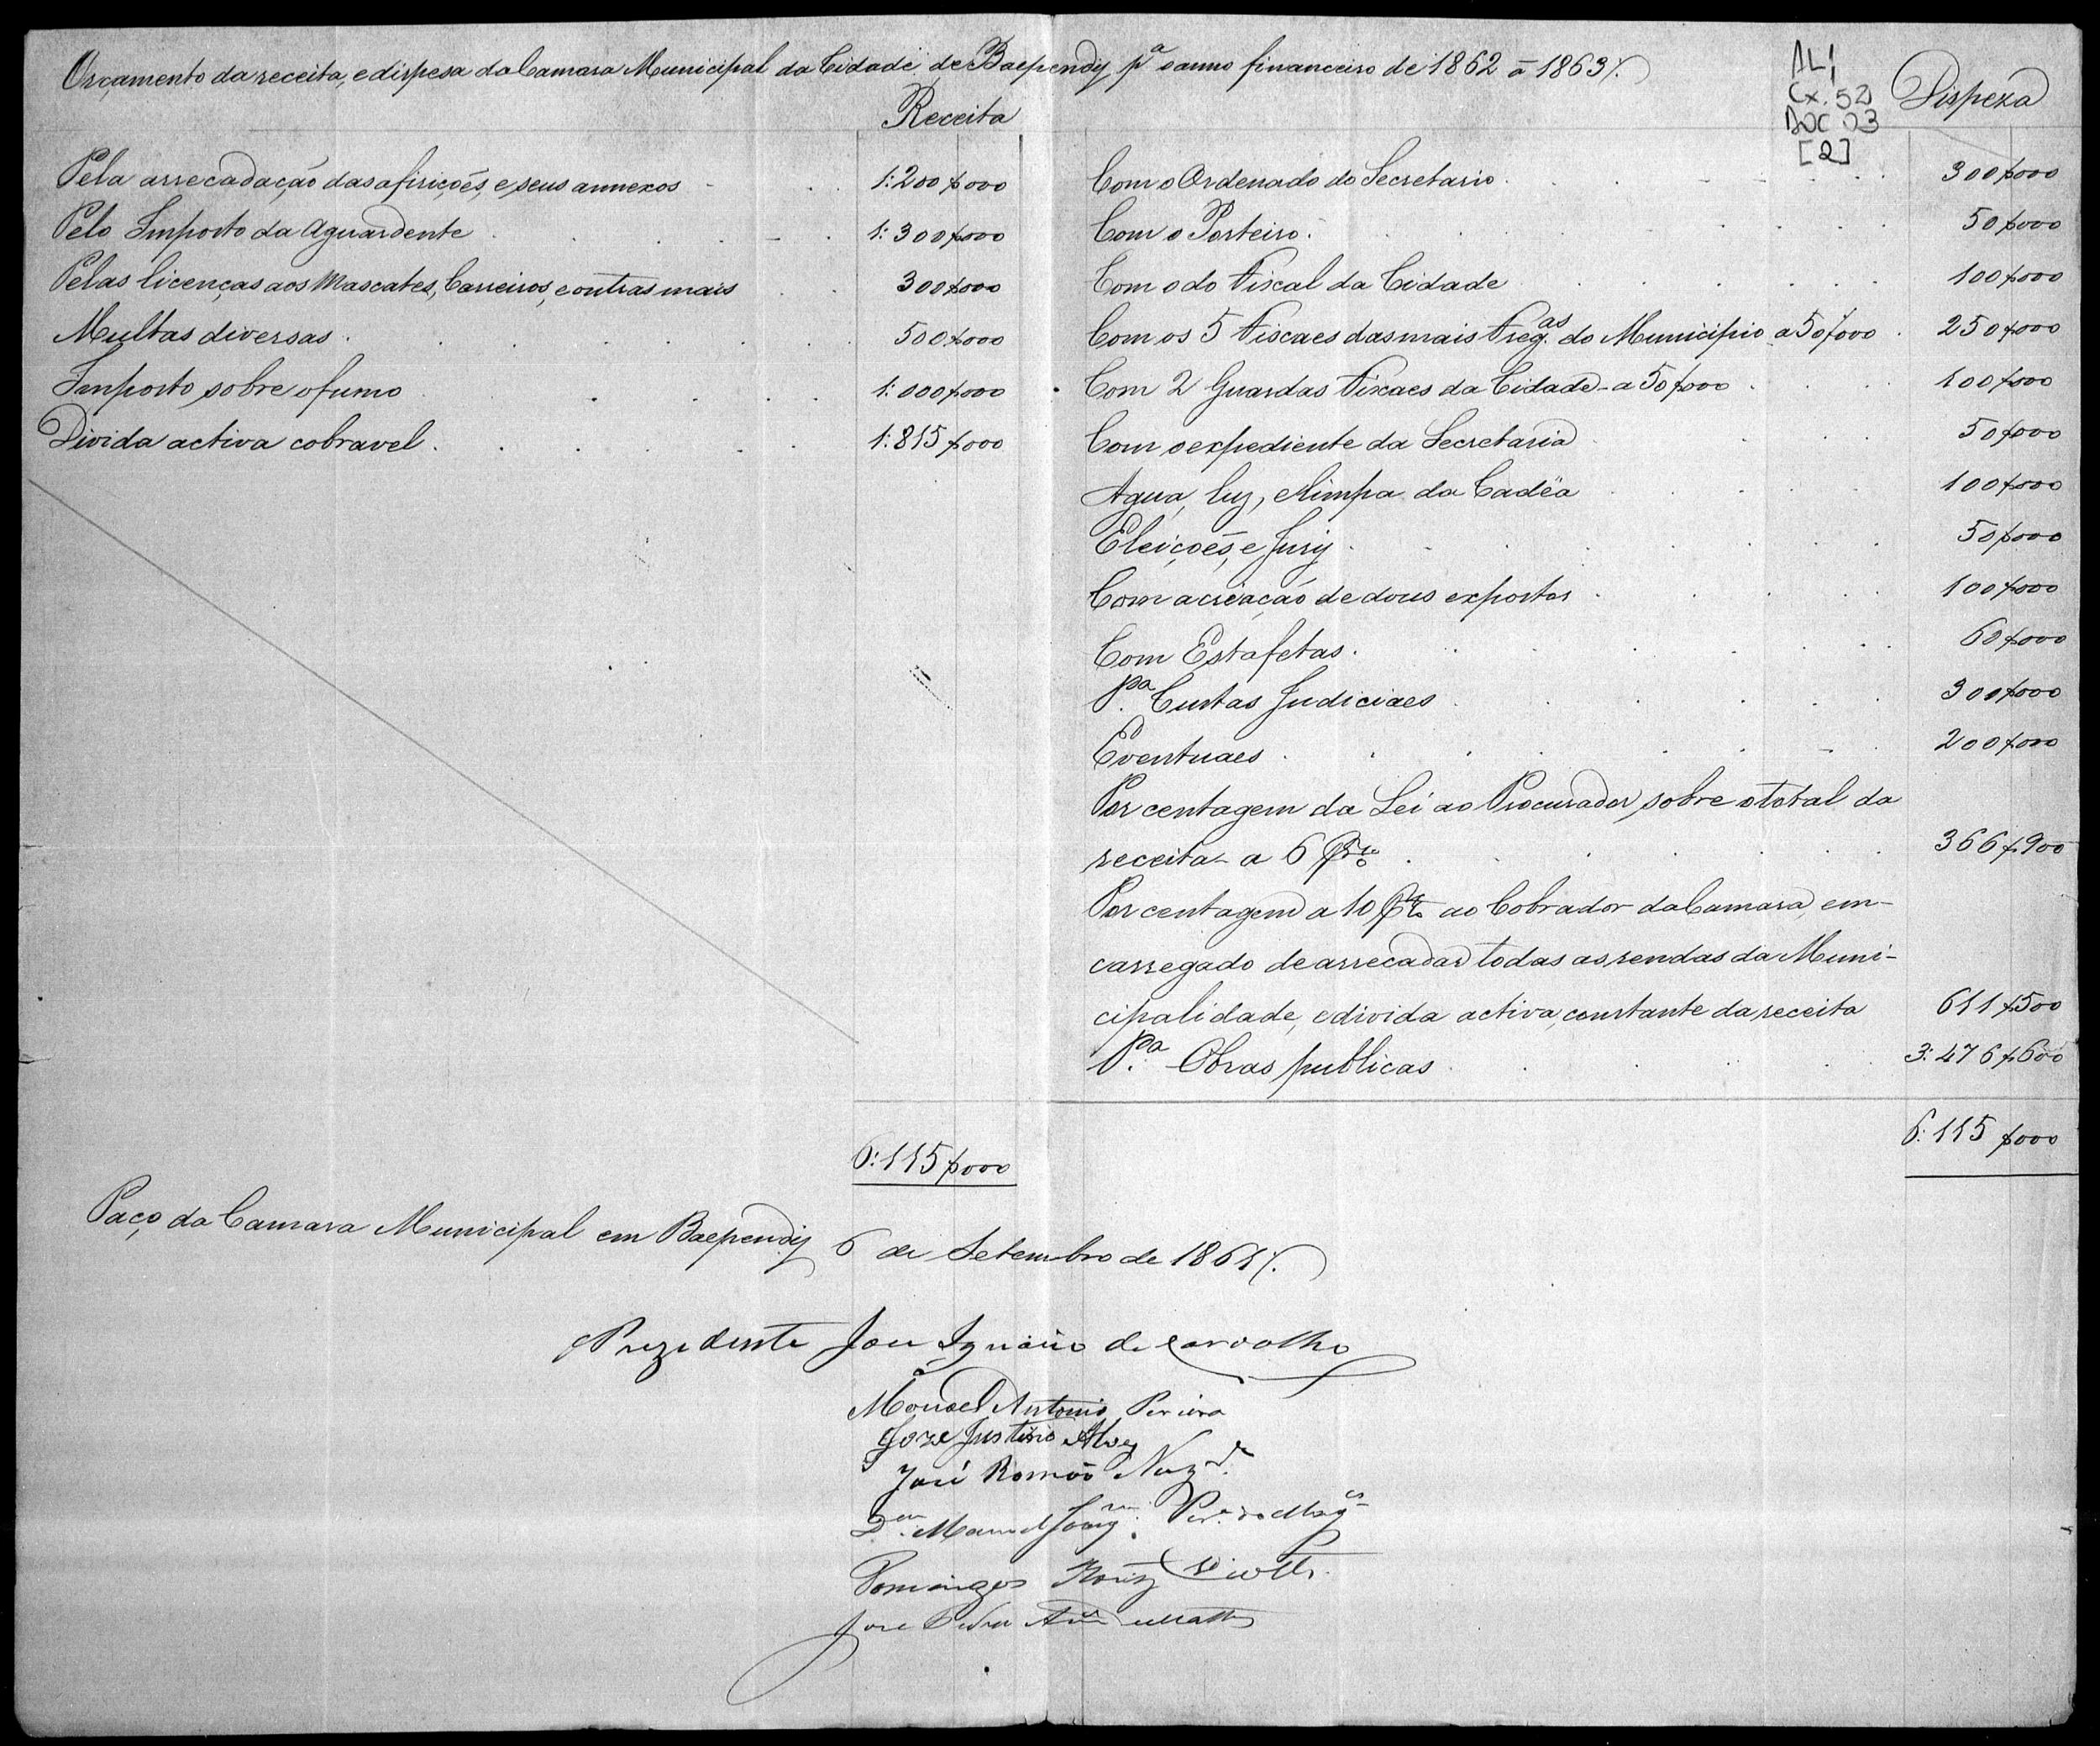 Orçamento da receita, e dispesa da Camara Municipal da Cidade de Baependy pª o anno financeiro de 1862 á 1863/.
AL;
Cx. 52
DOC 03
[2]
Receita
Pela arrecadação das afiriçoẽs, e seus annexos 1:200$000
Pelo Imposto da Aguardente 1:300$000
Pelas licenças aos Mascates, Carreiros, e outras mais 300$000
Multas diversas 500$000
Imposto sobre o fumo 1:000$000
Divida activa cobravel 1:815$000
6:115$000
Dispeza
Com o Ordenado do Secretario 300$000
Com o Porteiro 50$000
Com o do Fiscal da Cidade 100$000
Com os 5 Fiscaes das mais Freg.as do Municipio a 50$000 250$000
Com 2 Guardas Fiscaes da Cidade a 50$000 100$000
Com o expediente da Secretaria 50$000
Agua, luz, e limpa da Cadêa 100$000
Eleiçoẽs, e Jury 50$000
Com a creação de dous expostos 100$000
Com Estafetas 60$000
P.a Custas Judiciaes 300$000
Eventuaes 200$000
Por centagem da Lei ao Procurador sobre o total da
receita a 6 p% 366$900
Por centagem a 10 p% ao Cobrador da Camara, en-
carregado de arrecadar todas as rendas da Muni-
cipalidade, e divida activa, constante da receita 611$500
P.a Obras publicas 3:476$600
6:115$000
Paço da Camara Municipal em Baependy 6 de Setembro de 1861/.
Prezidente Jose Ignácio de Carvalho
Manoel Antonio Pereira
Joze Justino Alves
José Romão
Manuel Joaq.m Per.a de Mag.es
Domingos
Jose Pedro